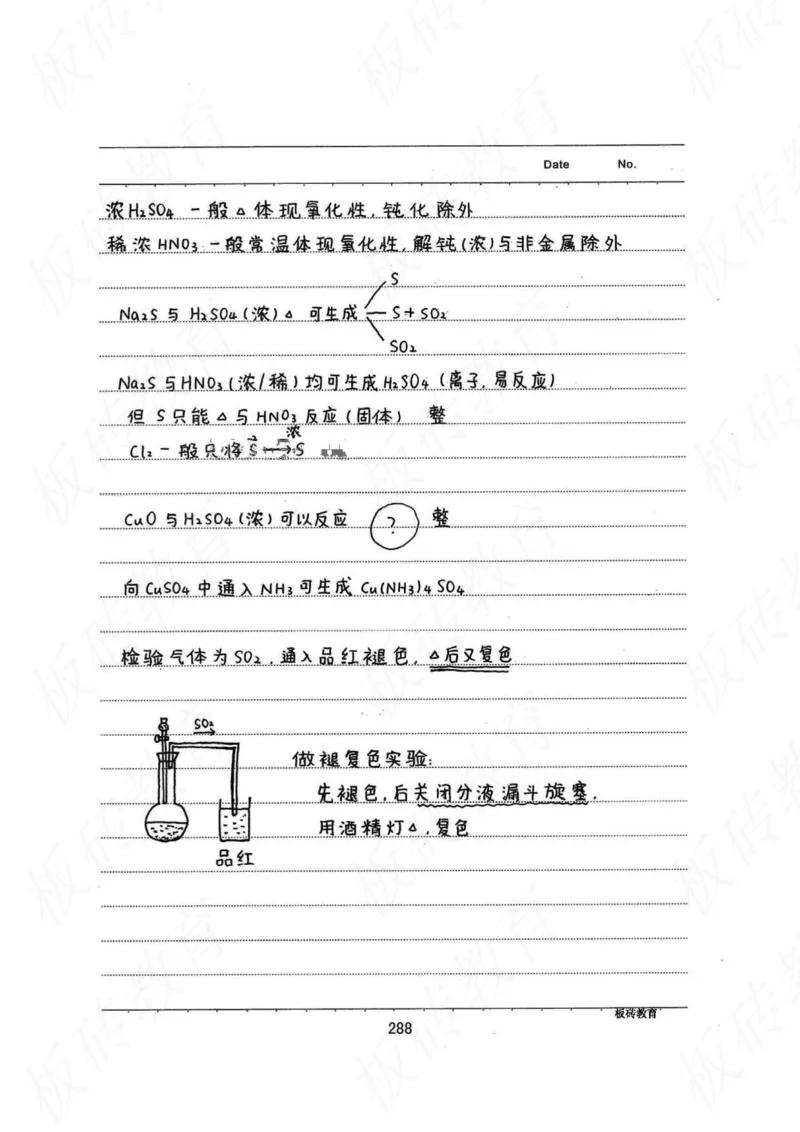 Date No.
浓H₂SO₄ 一般△体现氧化性,钝化除外
稀浓HNO₃一般常温体现氧化性,解钝(浓)与非金属除外
S
Na₂S与H₂SO₄(浓)△ 可生成 S+SO₂
SO₂
Na₂S与HNO₃(浓/稀)均可生成H₂SO₄(离子,易反应)
但 S只能△与HNO₃反应(固体) 整
浓
Cl₂一般只将 S → S
CuO与H₂SO₄(浓)可以反应 ? 整
向CuSO₄中通入NH₃可生成 Cu(NH₃)₄SO₄
检验气体为SO₂,通入品红褪色,△后又复色
SO₂
做褪复色实验:
先褪色,后关闭分液漏斗旋塞.
用酒精灯△,复色
品红
板砖教育
288